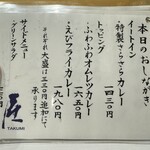 本日のおしながき
イートイン
特製さらさらカレー
一四三〇円
トッピング
ふわふわオムレツカレー
一六五〇円
えびフライカレー
一九八〇円
それぞれ大盛は三三〇円追加にて
承ります
サイドメニュー
グリーンサラダ
匠
TAKUMI